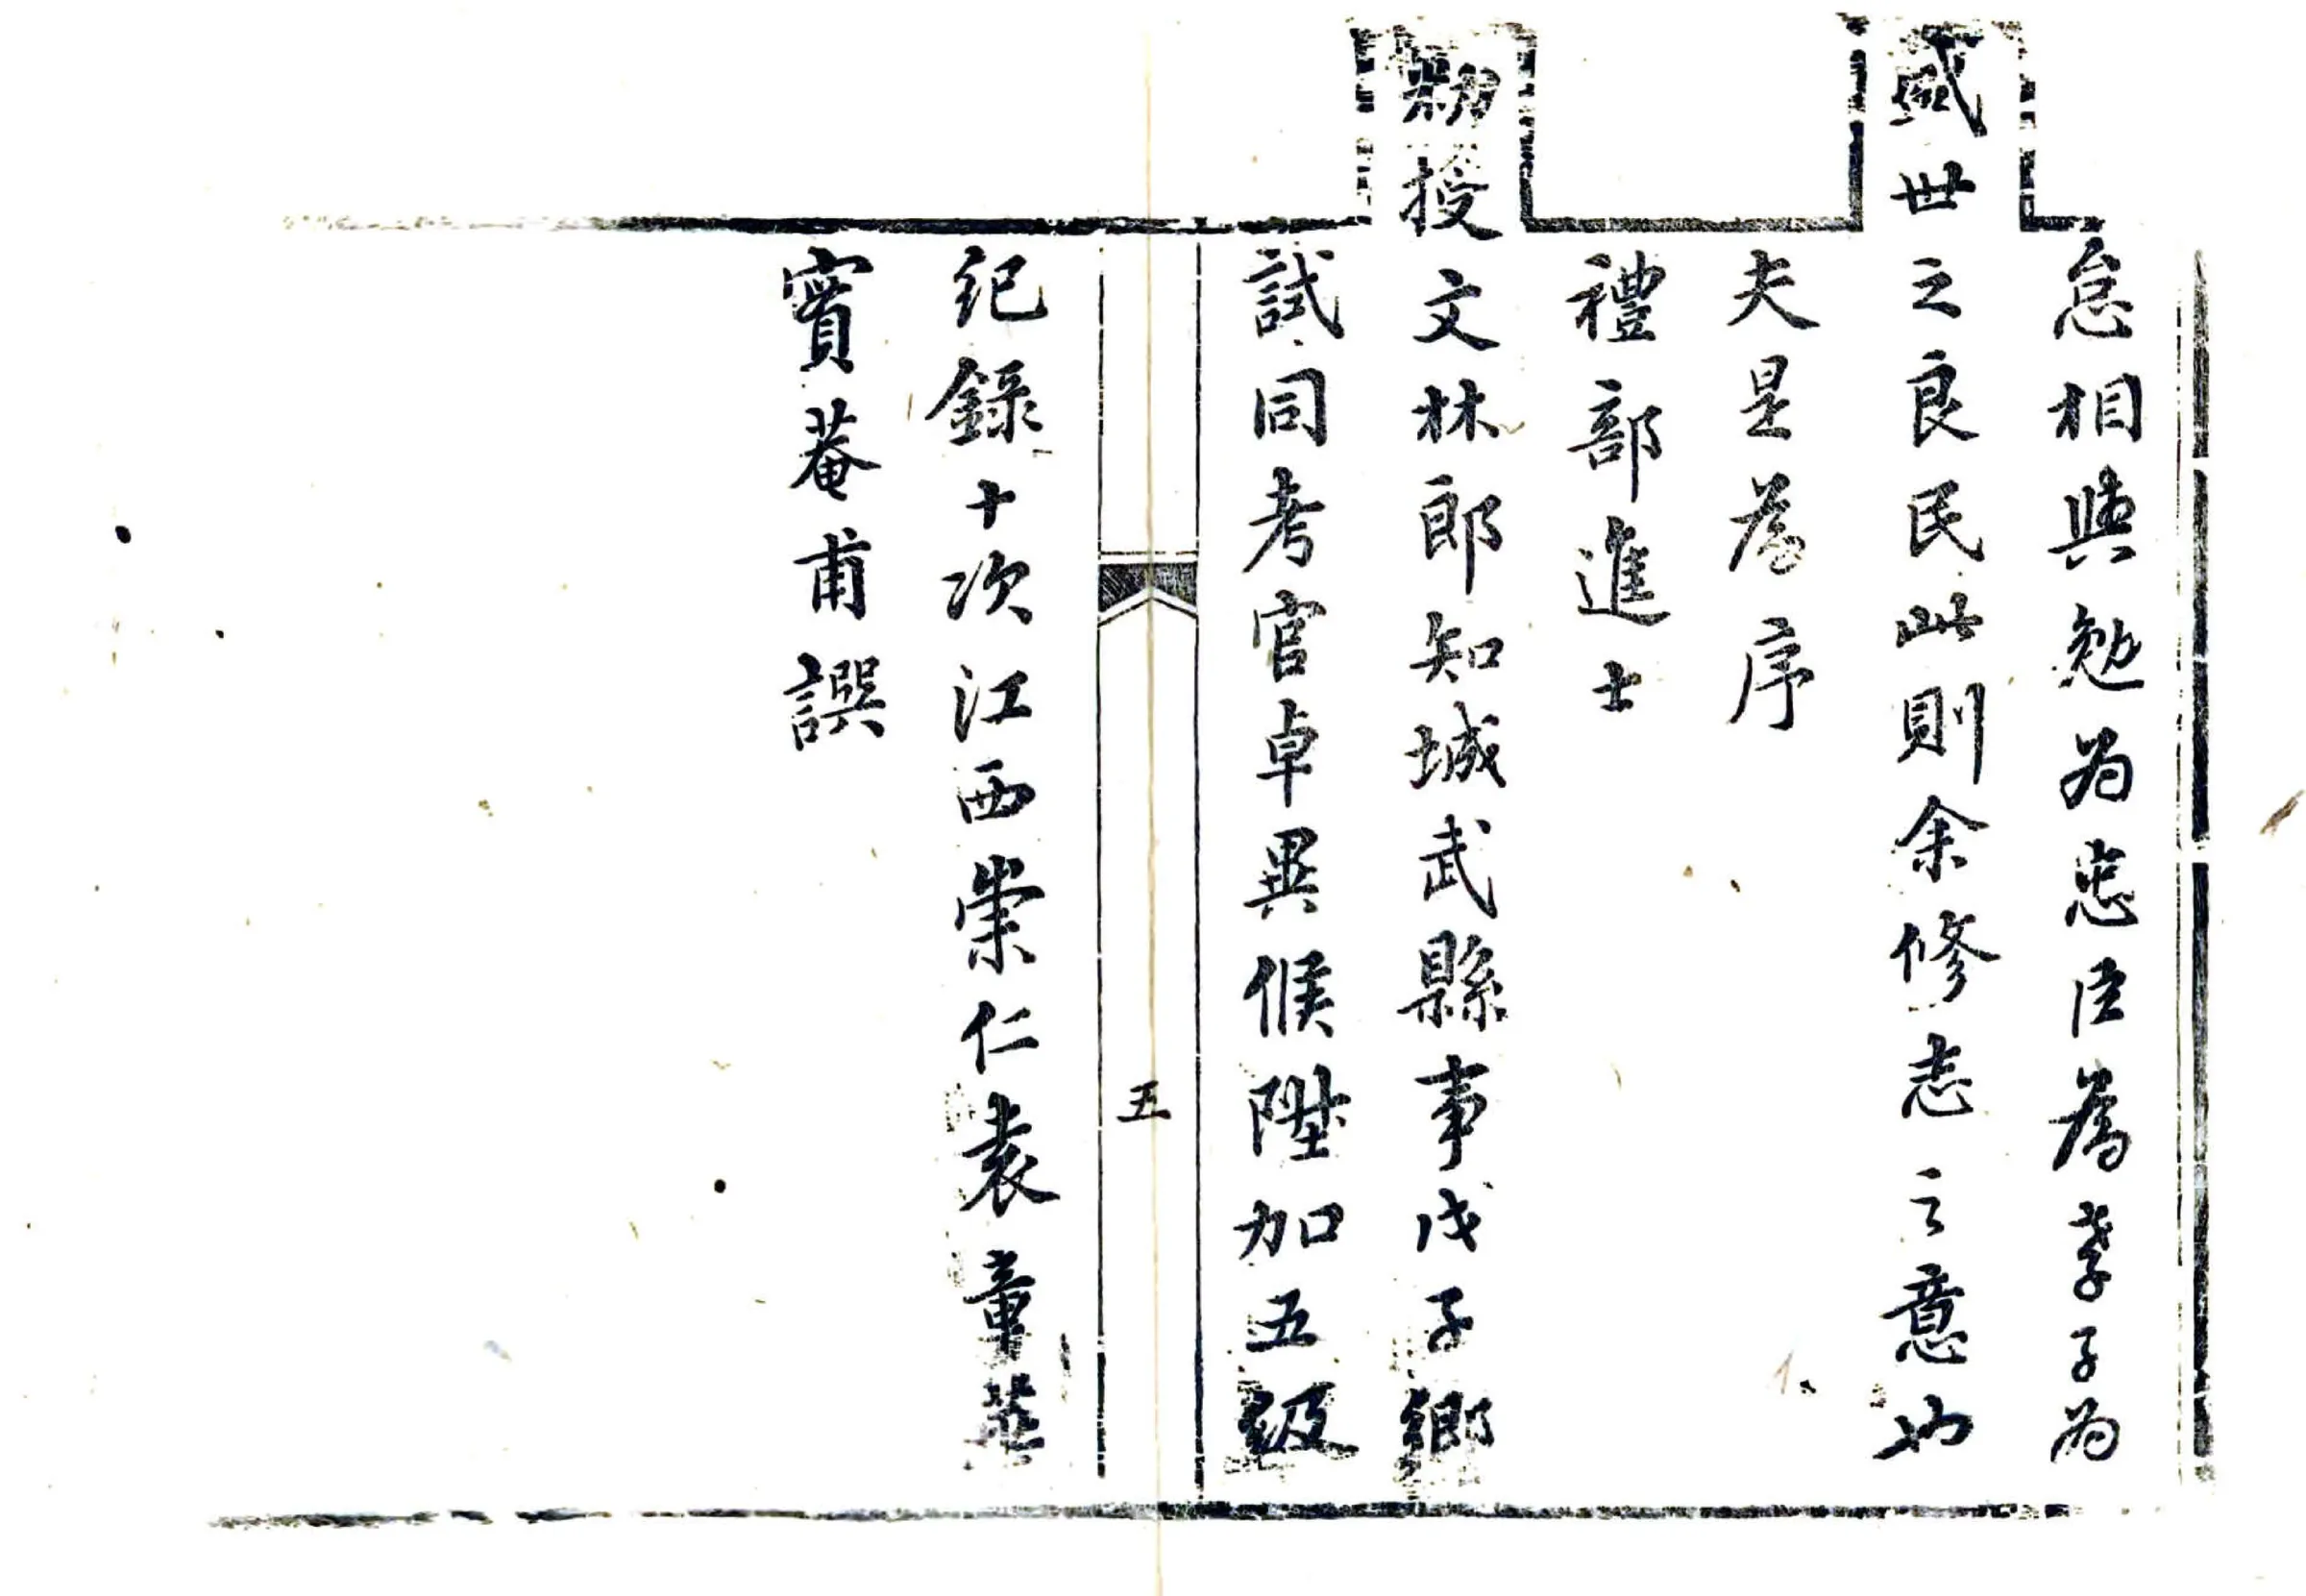 怠相與勉爲忠臣爲孝子爲
盛世之良民此則余修志之意也
夫是為序
禮部進士
勅授文林郎知城武縣事戊子鄉
試同考官卓異候陞加五級
五
紀錄十次江西崇仁袁章華
實菴甫譔